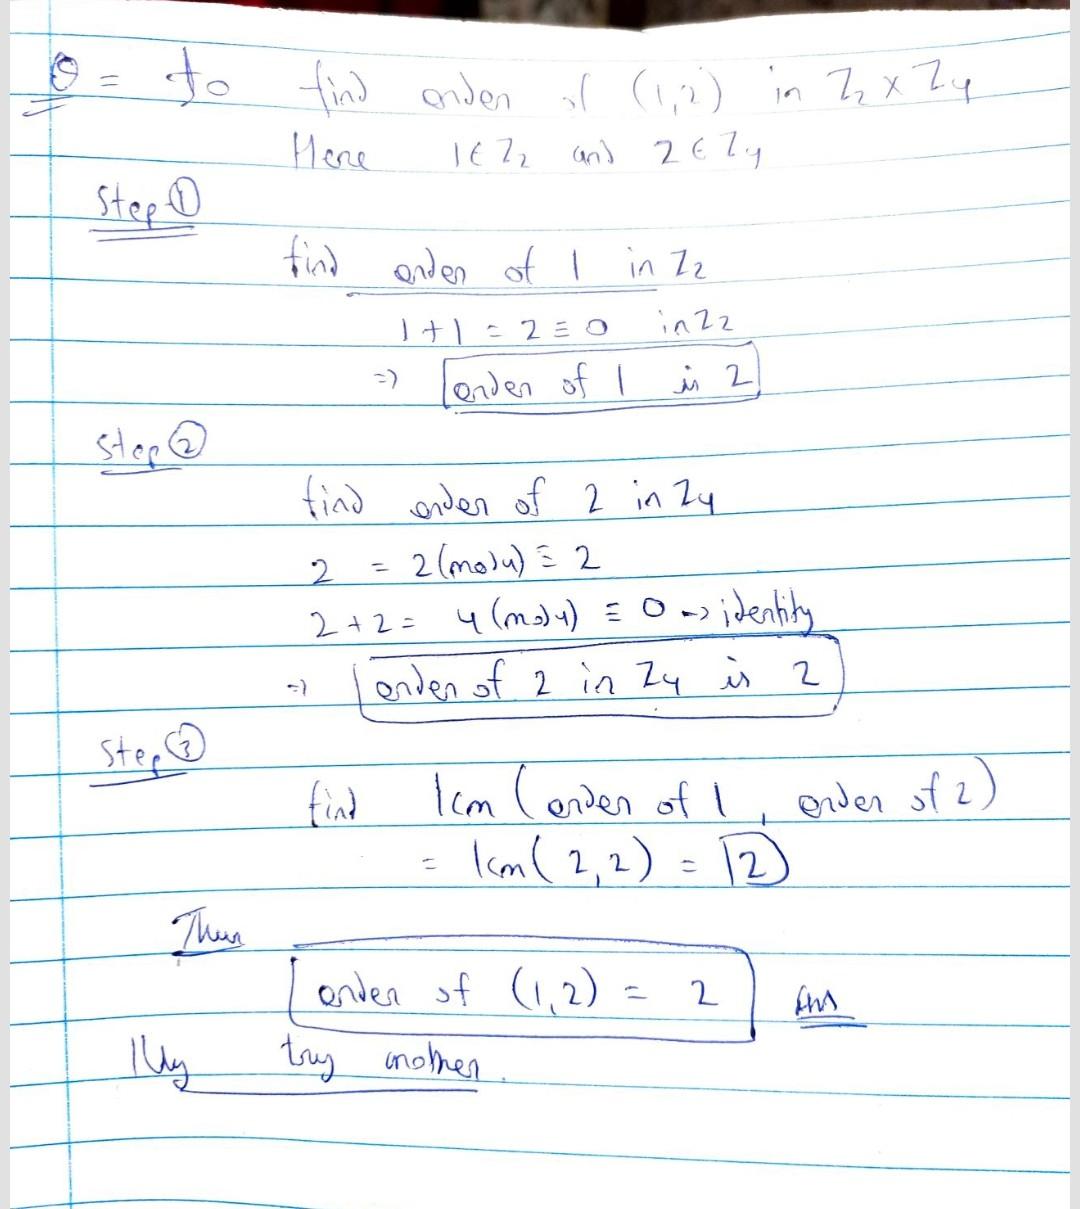 Q = to find order of (1,2) in Z₂ × Z₄
Here 1 ∈ Z₂ and 2 ∈ Z₄
Step ①
find order of 1 in Z₂
1 + 1 = 2 ≡ 0 in Z₂
⇒ order of 1 is 2
Step ②
find order of 2 in Z₄
2 = 2 (mod 4) ≡ 2
2 + 2 = 4 (mod 4) ≡ 0 → identity
⇒ order of 2 in Z₄ is 2
Step ③
find lcm (order of 1, order of 2)
= lcm (2,2) = 2
Thus
order of (1,2) = 2 Ans
lly try another.